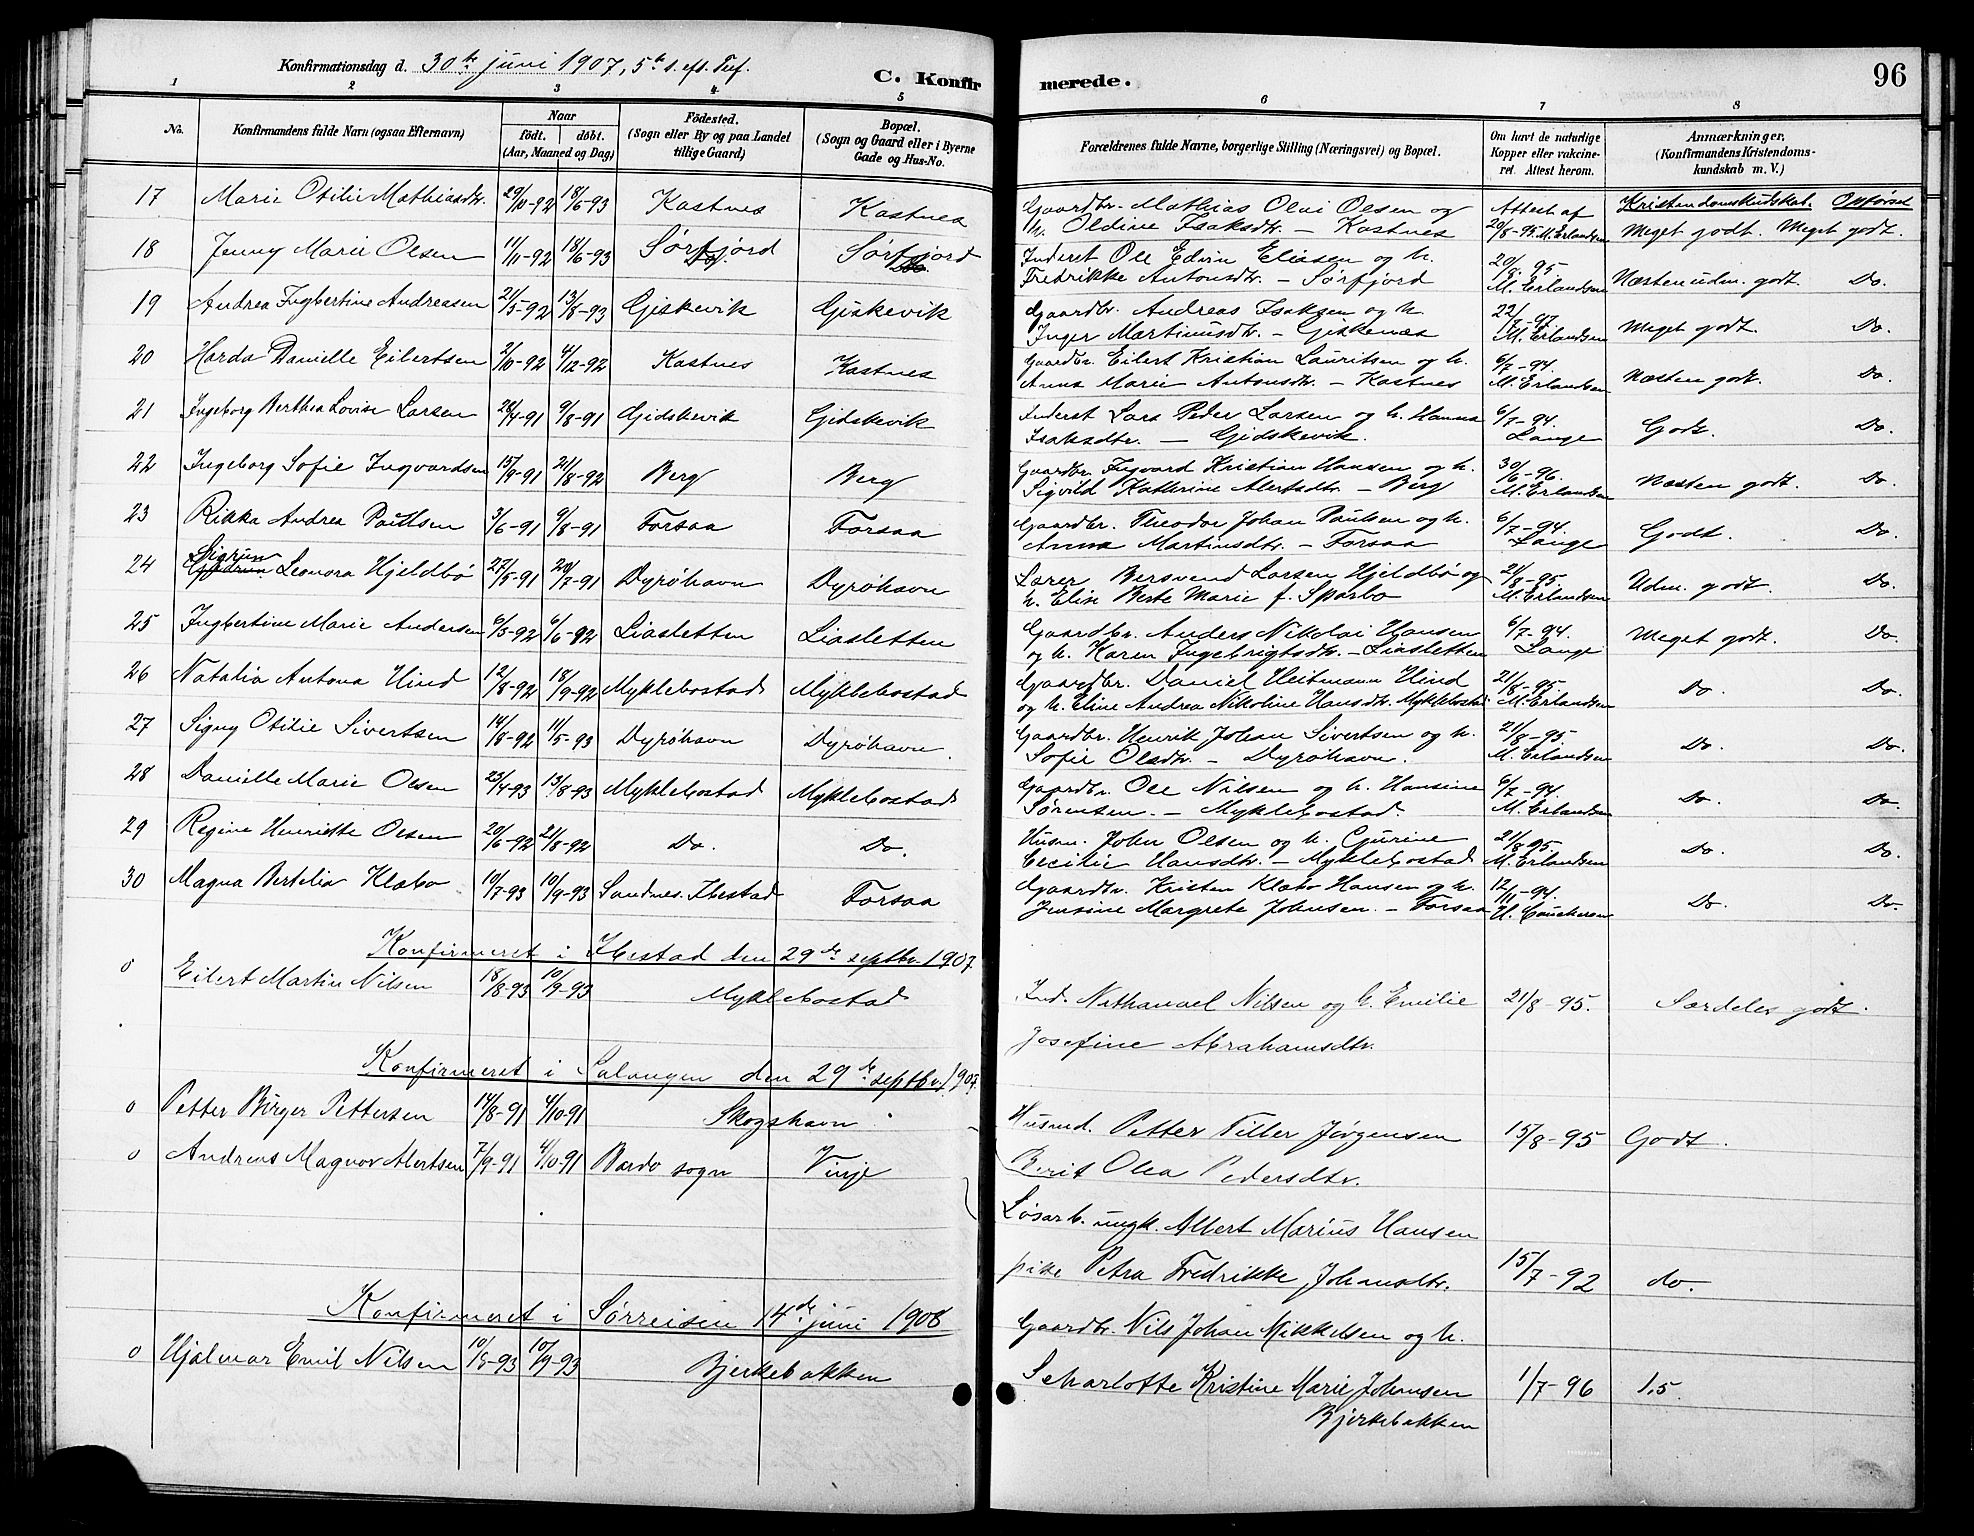 Konfirmationsdag d. 30te juni 1907, 5te s. eft. Tref.
C. Konfir
merede.
96
1 2 3 4 5 6 7 8
No. Konfirmandens fulde Navn (ogsaa Efternavn) Naar født. døbt. (Aar, Maaned og Dag) Fødested. (Sogn eller By og paa Landet tillige Gaard) Bopæl. (Sogn og Gaard eller i Byerne Gade og Hus-No.
Forældrenes fulde Navne, borgerlige Stilling (Næringsvei) og Bopæl. Om havt de naturlige Kopper eller vakcineret. Attest herom. Anmærkninger, (Konfirmandens Kristendomskundskab m. V.)
Kristendomskudskab. Opførsel
17 Marie Otilie Mathiasdtr. 29/10-92 18/6-93 Kastnes Kastnes Gaardbr. Mathias Olai Olsen og Attest af
h. Oldine Isaksdtr. – Kastnes 20/8-95. M. Erlandsen Meget godt. Meget godt.
18 Jenny Marie Olsen 11/11-92 18/6-93 Sørfjord Sørfjord Inderst Ole Edvin Eliasen og h. 20/8-95.
Fredrikke Antonsdtr. – Sørfjord M. Erlandsen Næsten udm. godt. Do.
19 Andrea Ingbertine Andreasen 21/5-92 13/8-93 Gjskevik Gjskevik Gaardbr. Andreas Isaksen og h. 22/7-97
Inger Martinusdtr. – Gjskenes M. Erlandsen Meget godt. Do.
20 Harda Danielle Eilertsen 2/10-92 4/12-92 Kastnes Kastnes Gaardbr. Eilert Kristian Lauritsen og h. 6/7-94.
Anna Marie Antonsdtr. – Kastnes M. Erlandsen Næsten godt. Do.
21 Ingeborg Berthea Lovise Larsen 28/4-91 9/8-91 Gidskevik Gidskevik Inderst Lars Peder Larsen og h. Hanna 6/7-94.
Isaksdtr. – Gidskevik. Lange Godt. Do.
22 Ingeborg Sofie Ingvardsen 15/9-91 21/8-92 Berg Berg Gaardbr. Ingvard Kristian Hansen og h. 30/6-96.
Sigvild Kathrine Alertsdtr. – Berg M. Erlandsen Næsten godt. Do.
23 Rikka Andrea Paulsen 3/6-91 9/8-91 Forsaa Forsaa Gaardbr. Theodor Johan Paulsen og h. 6/7-94.
Anna Martinsdtr. – Forsaa Lange Godt. Do.
24 Sigrun Leonora Hjeldbø 27/5-91 20/7-91 Dyrøhavn Dyrøhavn Lærer Bersvend Larsen Hjeldbø og 21/8-95.
h. Elise Berte Marie f. Sparbo M. Erlandsen Udm. godt. Do.
25 Ingbertine Marie Andersen 6/3-92 6/6-92 Liasletten Liasletten Gaardbr. Anders Nikolai Hansen 6/7-94.
og h. Karen Ingebrigtsdtr. – Liasletten Lange Meget godt. Do.
26 Natalia Antona Hind 12/8-92 18/9-92 Myklebostad Myklebostad Gaardbr. Daniel Heitmann Hind 21/8-95
og h. Eline Andrea Nikoline Hansdtr. Myklebostad M. Erlandsen Do. Do.
27 Signy Otilie Sivertsen 14/8-92 11/5-93 Dyrøhavn Dyrøhavn. Gaardbr. Henrik Johan Sivertsen og h. 21/8-95
Sofie Olsdtr. – Dyrøhavn. M. Erlandsen Do. Do.
28 Danielle Marie Olsen 23/4-93 13/8-93 Myklebostad Myklebostad Gaardbr. Ole Nilsen og h. Hansine 6/7-94.
Sørensen. – Myklebostad. M. Erlandsen Do. Do.
29 Regine Henriette Olsen 20/6-92 21/8-92 Do. Do. Husm. John Olsen og h. Gjurine 21/8-95.
Cecilie Hansdtr. – Myklebostad M. Erlandsen Do. Do.
30 Magna Bertelia Klæbo 10/7-93 10/9-93 Sandnes. Ibestad Forsaa Gaardbr. Kristen Klæbo Hansen og h. 12/11-94.
Jensine Margrete Johnsen. – Forsaa Do. Do.
Konfirmeret i Ibestad den 29de septbr. 1907
o Eilert Martin Nilsen 18/8-93 10/9-93 Myklebostad Ind. Nathanael Nilsen og h. Emilie 21/8-95. Særdeles godt.
Josefine Abrahamsdtr.
Konfirmeret i Salangen den 29de septbr. 1907.
o Petter Birger Pettersen 14/8-91 4/10-91 Skogshavn Husmd. Petter Tiller Jørgensen 15/8-95 Godt.
Berit Olea Pedersdtr.
o Andreas Magnor Alertsen 7/9-91 4/10-91 Bardo sogn Vinje
Løsarb. ungk. Albert Marius Hansen
pike Petra Fredrikke Johansdtr. 15/7-92 do.
Konfirmeret i Sørreisen 14de juni 1908
o Hjalmar Emil Nilsen 10/5-93 10/9-93 Bjerkebakken Gaardbr. Nils Johan Mikkelsen og h.
Scharlotte Kristine Marie Johansen 1/7-96 1.5.
Bjerkebakken